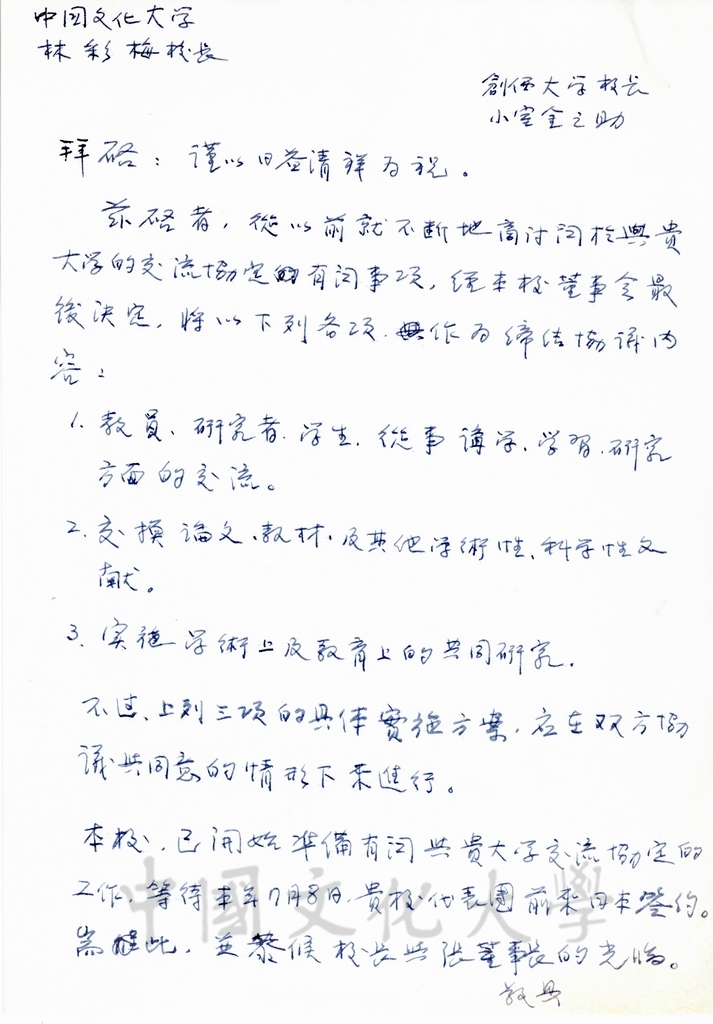 中国文化大学
林彩梅校長
創価大学校長
小室金之助
拜啓：謹以日益清祥为祝。
茲啓者，從以前就不断地商讨関於與貴
大学的交流協定的有関事项，経本校董事会最
後決定，將以下列各项，作为缔结協議内
容：
1. 教員、研究者、学生，從事講学、学習、研究
方面的交流。
2. 交換論文、教材、及其他学術性、科学性文
献。
3. 実施学術上及教育上的共同研究。
不过、上列三项的具体實施方案，应在双方協
議共同意的情形下来進行。
本校，已開始準備有関與貴大学交流協定的
工作，等待本年7月8日，貴校代表團前来日本签约。
耑此，並候校長與張董事長的光临。
敬具
中國文化大學